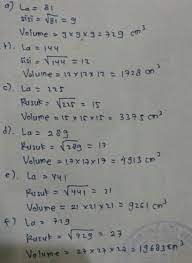 a) La = 81
sisi = √81 = 9
Volume = 9 x 9 x 9 = 729 cm³
b). La = 144
sisi = √144 = 12
Volume = 12 x 12 x 12 = 1728 cm³
c). La = 225
Rusuk = √225 = 15
Volume = 15 x 15 x 15 = 3375 cm³
d). La = 289
Rusuk = √289 = 17
Volume = 17 x 17 x 17 = 4913 cm³
e). La = 441
Rusuk = √441 = 21
Volume = 21 x 21 x 21 = 9261 cm³
f) La = 729
Rusuk = √729 = 27
Volume = 27 x 27 x 27 = 19683 cm³